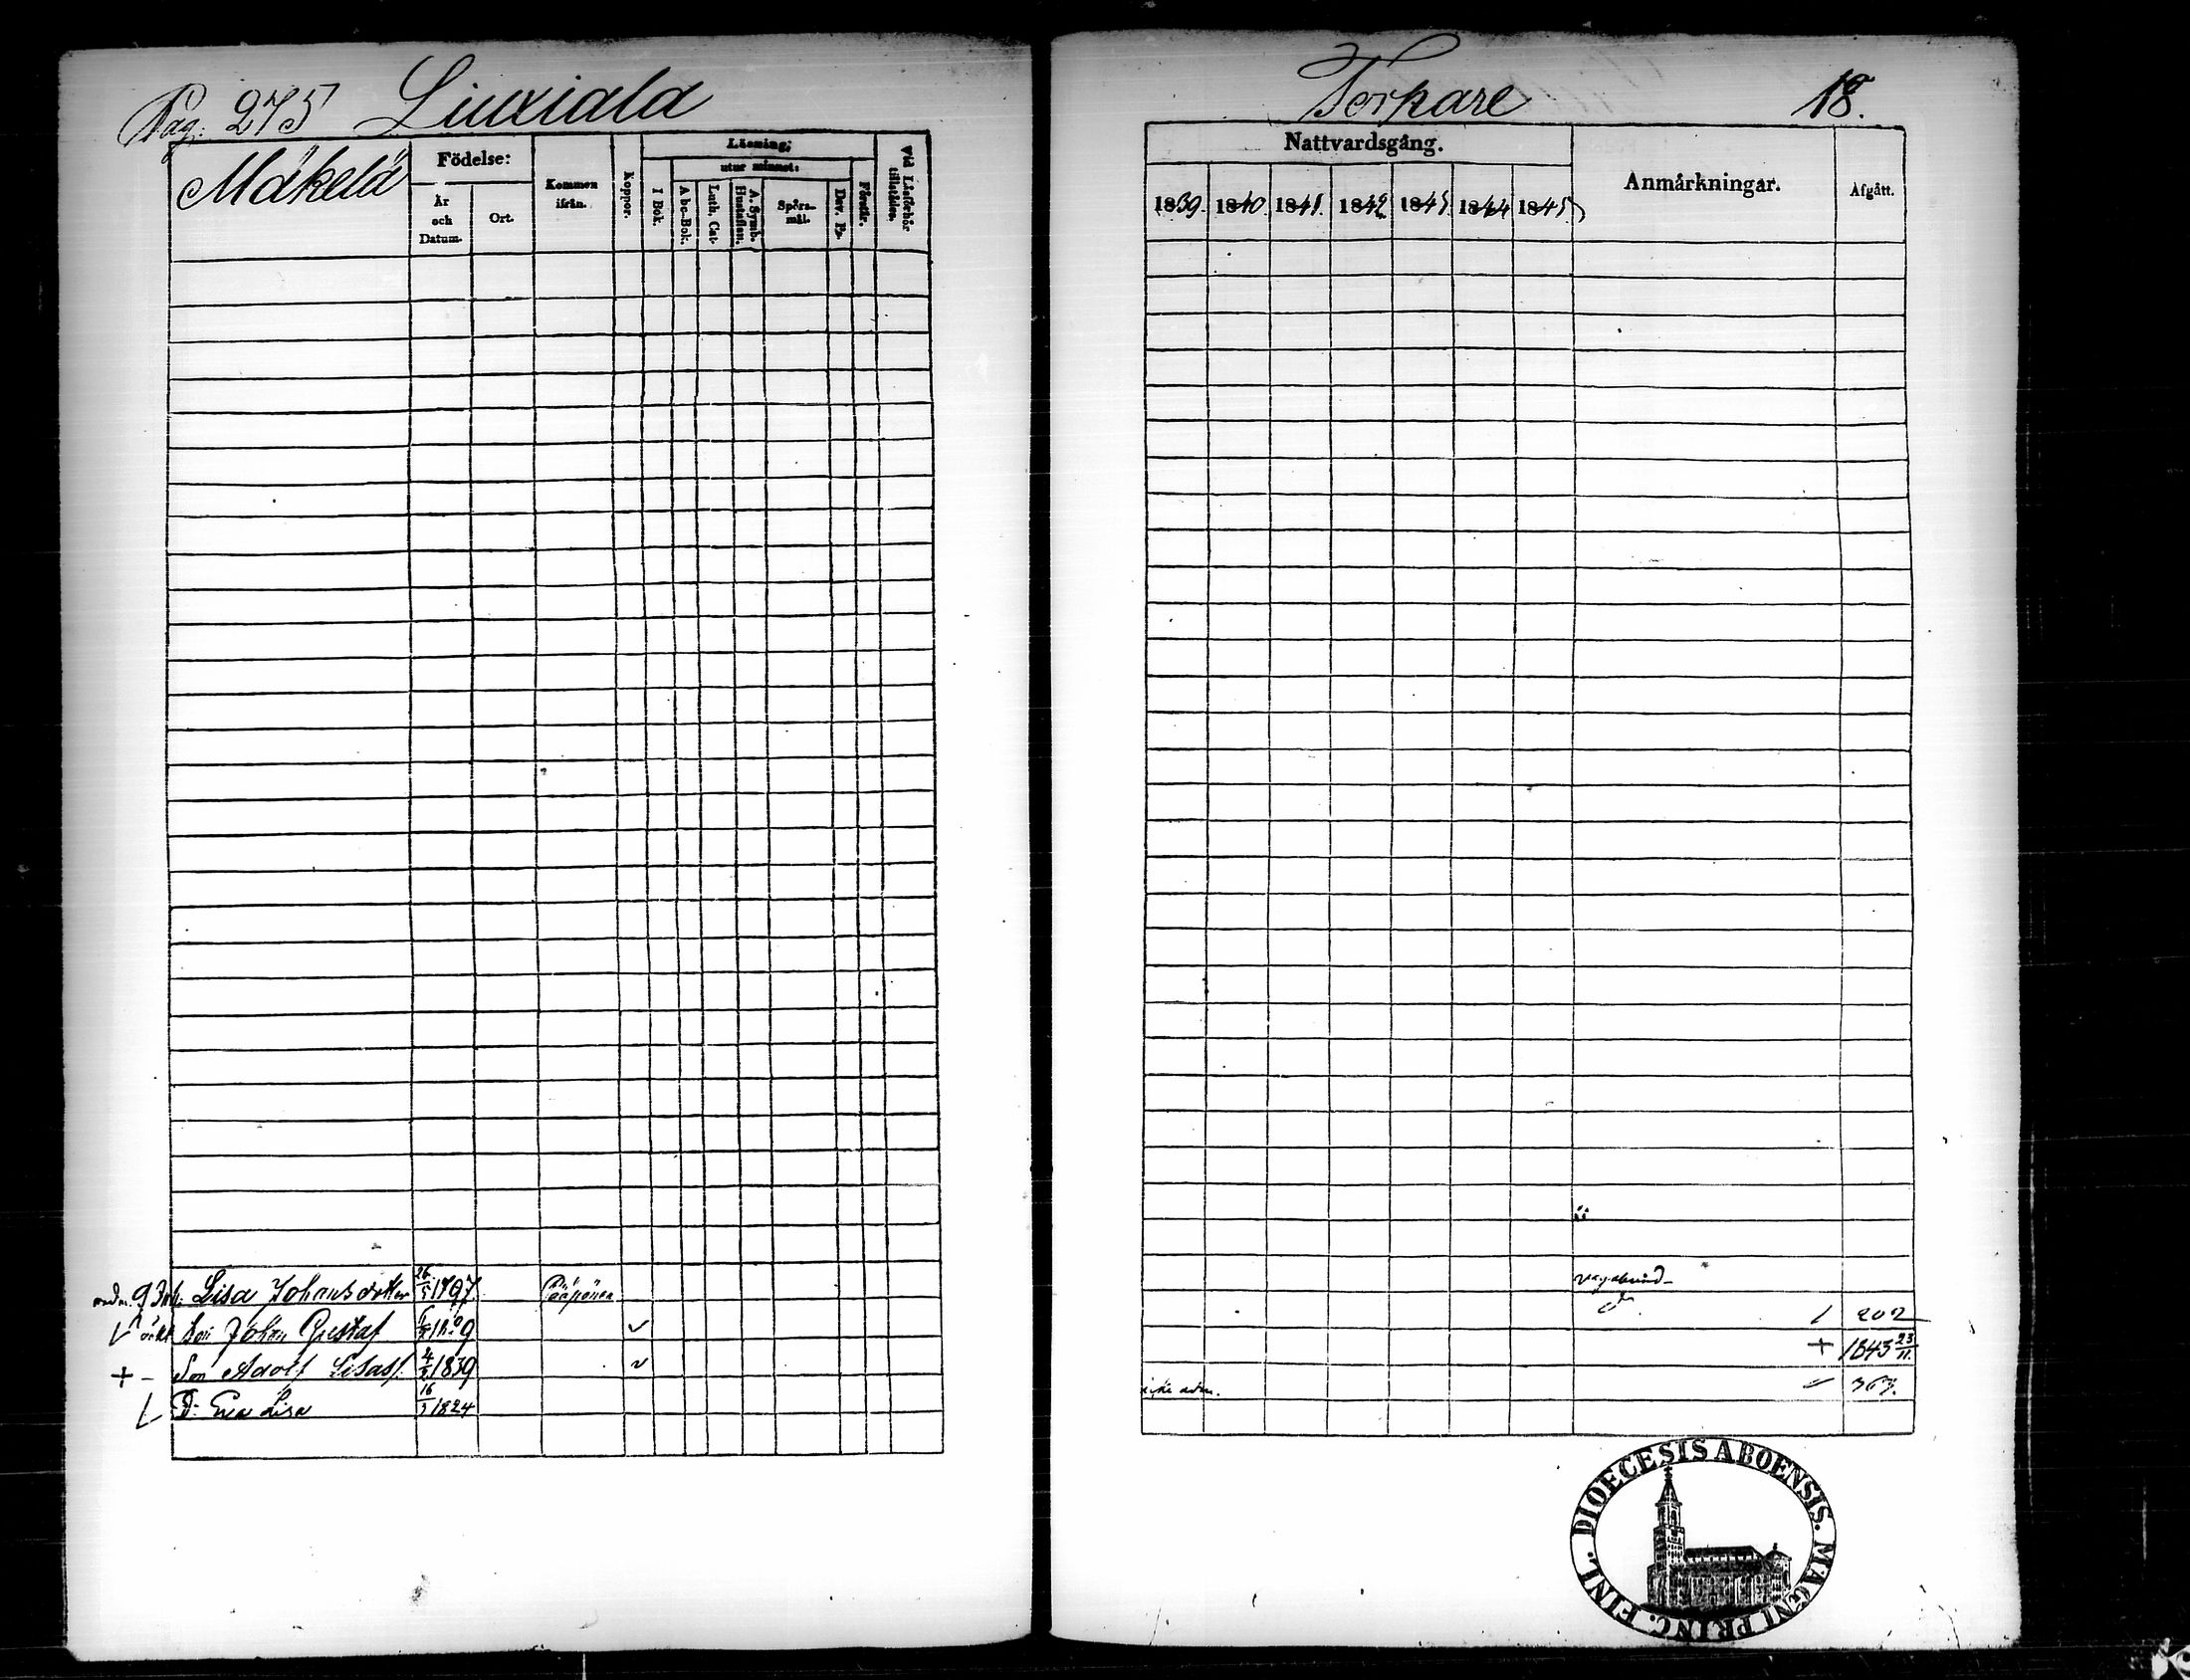 Pag. 275 Liuxiala
Mäkelä
Födelse:
År och Datum.
Ort.
Kommen ifrån.
Koppor.
Läsning;
utur minnet:
I Bok.
A bc-Bok.
Luth. Cat.
A. Symb. Hustaflan.
Spörsmål.
Dav. Ps.
Förstår.
Vid Läsförhör tillstädes.
Lisa Johansdotter 26/5 1797
Son Johan Gustaf
+ - Son Adolf Lisass. 4/2 1839
D: Eva Lisa 16/3 1824
Torpare 18.
Nattvardsgång.
1839. 1840 1841. 1842 1843. 1844 1845.
Anmärkningar.
Afgått.
vagabond
202
+ 1843 23/11.
icke adm. 363.
DIOECESIS ABOENSIS. MAGNI PRINC. FINL.